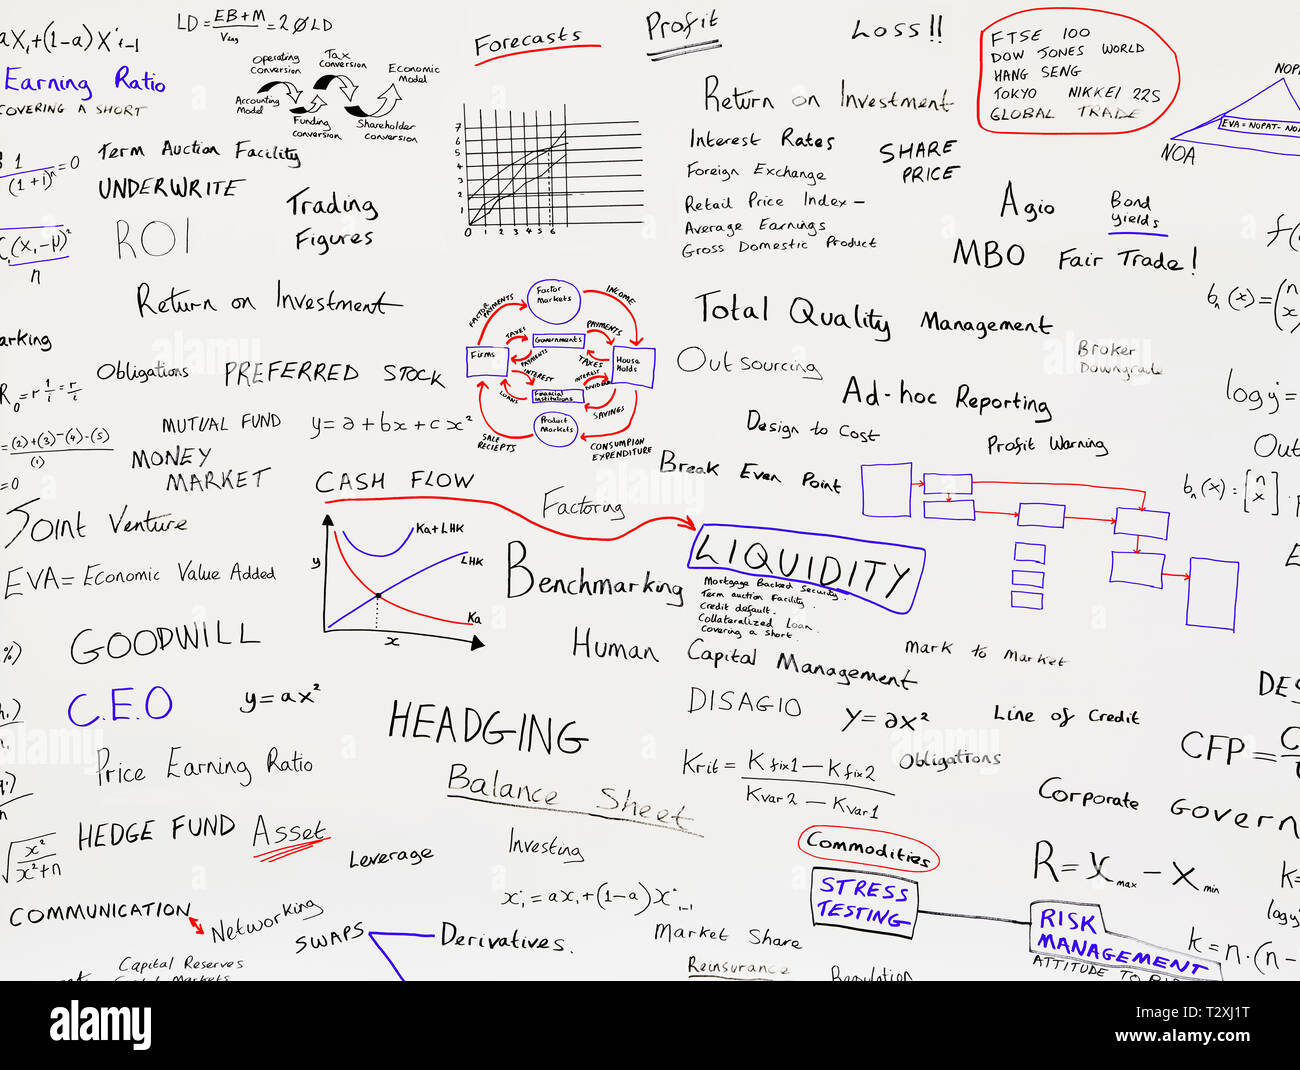 aX₁+(1-a)X'i-1
LD = EB+M / Vlug = 20LD
Earning Ratio
COVERING A SHORT
Operating Conversion
Tax Conversion
Economic Model
Accounting Model
Funding Conversion
Shareholder Conversion
Forecasts
Profit
Loss!!
FTSE 100
DOW JONES WORLD
HANG SENG
TOKYO NIKKEI 225
GLOBAL TRADE
NOPA
EVA = NOPAT - NO
NOA
1 / (1+i)ⁿ = 0
Term Auction Facility
UNDERWRITE
ROI
Trading
Figures
7
6
5
4
3
2
1
0 1 2 3 4 5 6
Return on Investment
Interest Rates
SHARE
PRICE
Foreign Exchange
Retail Price Index -
Average Earnings
Gross Domestic Product
Agio
Bond
yields
MBO Fair Trade!
(x₁-μ)²
n
Return on Investment
Factor Markets
FACTOR PAYMENTS
INCOME
TAXES
Governments
PAYMENTS
Firms
PAYMENTS
TAXES
House Holds
INTEREST
INTEREST
LOANS
Financial institutions
SAVINGS
Product Markets
SALE RECIEPTS
CONSUMPION EXPENDITURE
Total Quality Management
bn(x)=(n x)
arking
Out Sourcing
Broker
Downgrade
Obligations
PREFERRED STOCK
R₀ = r 1/i = r/i
Ad-hoc Reporting
log y =
MUTUAL FUND
y = a + bx + cx²
=(2)+(3)-(4)-(5)
(1)
=0
Design to Cost
Profit Warning
Out
MONEY
MARKET
CASH FLOW
Break Even Point
bn(x) = [n x] .
Factoring
Joint Venture
y
Ka+LHK
LHK
Ka
x
LIQUIDITY
Mortgage Backed Security.
Term auction Facility.
Credit default.
Collateralized Loan.
Covering a short.
EVA = Economic Value Added
Benchmarking
GOODWILL
Human Capital Management
Mark to Market
%)
C.E.O
y = ax²
DISAGIO
y = ax²
Line of Credit
DES
HEADGING
CFP =
Price Earning Ratio
Krit = Kfix1 - Kfix2 / Kvar2 - Kvar1
Obligations
Balance Sheet
Corporate Govern
HEDGE FUND
Asset
√ x² / x²+n
Leverage
Investing
Commodities
R = Xmax - Xmin
k=
STRESS
TESTING
COMMUNICATION
Networking
x'i = ax₁ + (1-a)X'i-1
RISK
MANAGEMENT
ATTITUDE TO
log y
k = n.(n-
SWAPS
Derivatives.
Market Share
Capital Reserves
Reinsurance
Regulation
alamy
Image ID: T2XJ1T
www.alamy.com